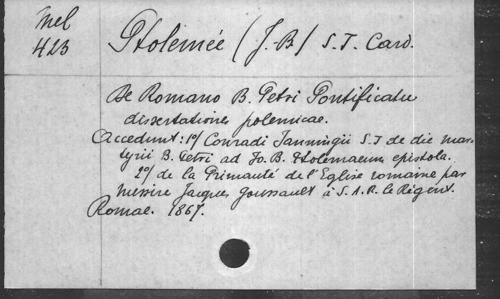 Mel
423
Ptolemée (J. B) S. J. Card.
De Romano B. Petri Pontificatu
dissertationes polemicae.
Accedunt: 1º/ Conradi Janningii S. J de die mar-
tyrii B. Petri ad Jo. B. Ptolemaeum epistola.
2º/ de la Primauté de l'Eglise romaine par
messire Jacques Goussault à S. A. R. le Régent.
Romae. 1867.